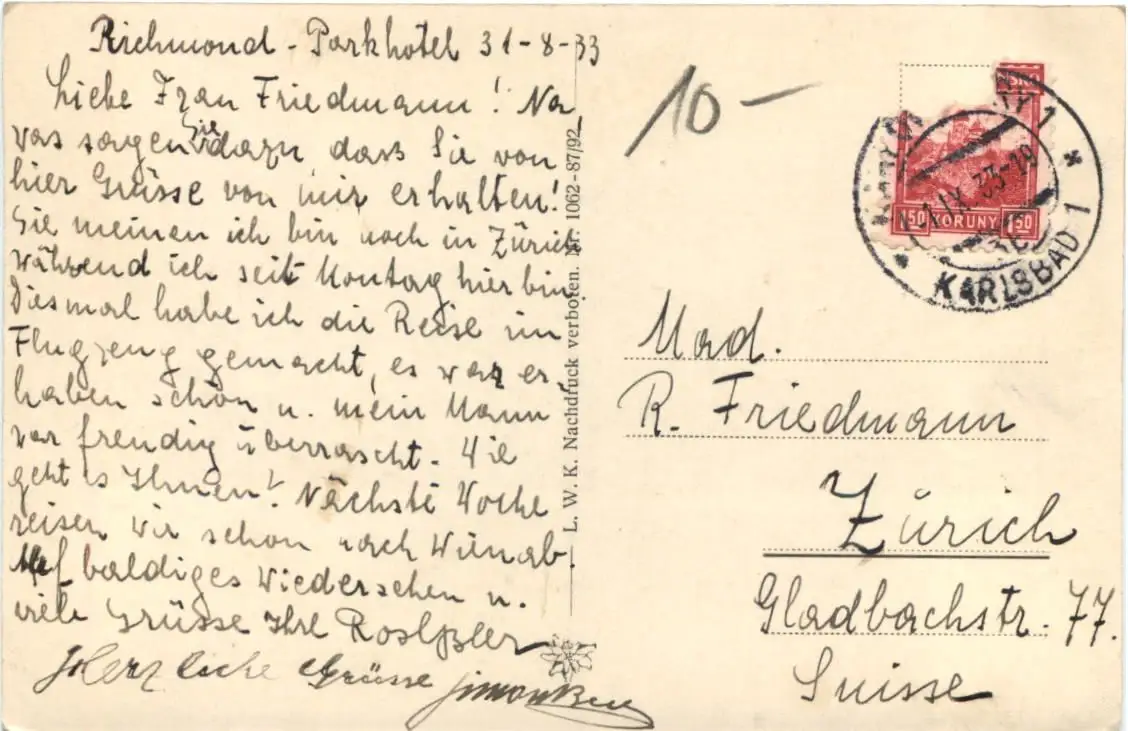 Richmond - Parkhotel 31-8-33
Liebe Frau Friedmann! Na
was sagen Sie dazu daß Sie von
hier Grüsse von mir erhalten!
Sie meinen ich bin noch in Zürich
während ich seit Montag hier bin.
Diesmal habe ich die Reise im
Flugzeug gemacht, es war er-
haben schön u. mein Mann
war freudig überrascht. Wie
geht es Ihnen? Nächste Woche
reisen wir schon nach Wien ab.
Auf baldiges Wiedersehen u.
viele Grüsse Ihre
Herzliche Grüsse
L. W. K. Nachdruck verboten. Nr. 1062-87/92
10 —
1.50 KORUNY 1.50
1. IX. 33-19
KARLSBAD 1
Mad.
R. Friedmann
Zürich
Gladbachstr. 77.
Suisse